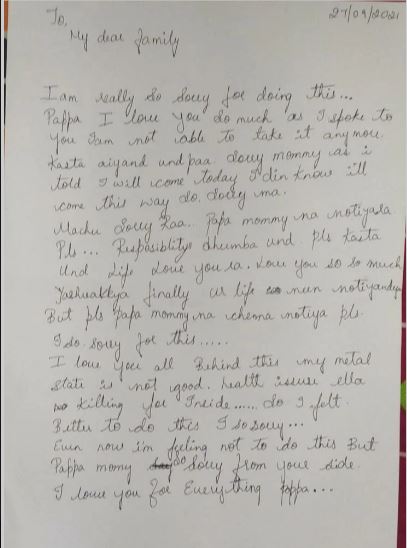 To,
27/09/2021
My dear family
I am really so sorry for doing this...
Pappa I love you so much as I spoke to
you I am not able to take it anymore.
Kasta aiyand und paa. sorry mommy as i
told I will come today I din know ill
come this way so, sorry ma.
Machu Sorry Raa.. Papa mommy na notiyara
Pls... Resposiblitys dhumba und. pls Kasta
Und Life Love you ra. Love you so so much
finally ur life nun
But pls papa mommy na chenna notiya pls.
I so. sorry for this.....
I love you all Behind this my metal
state is not good. health issuse ella
killing for Inside...... So I felt.
Better to do this I so sorry...
Even now i'm feeling not to do this But
Pappa momy Sorry from your side.
I love you for Everything pappa...